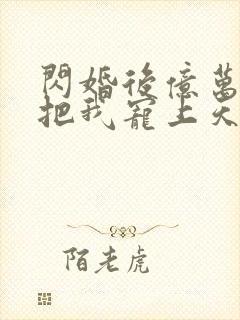 閃婚後億萬
把我寵上天
陌老虎